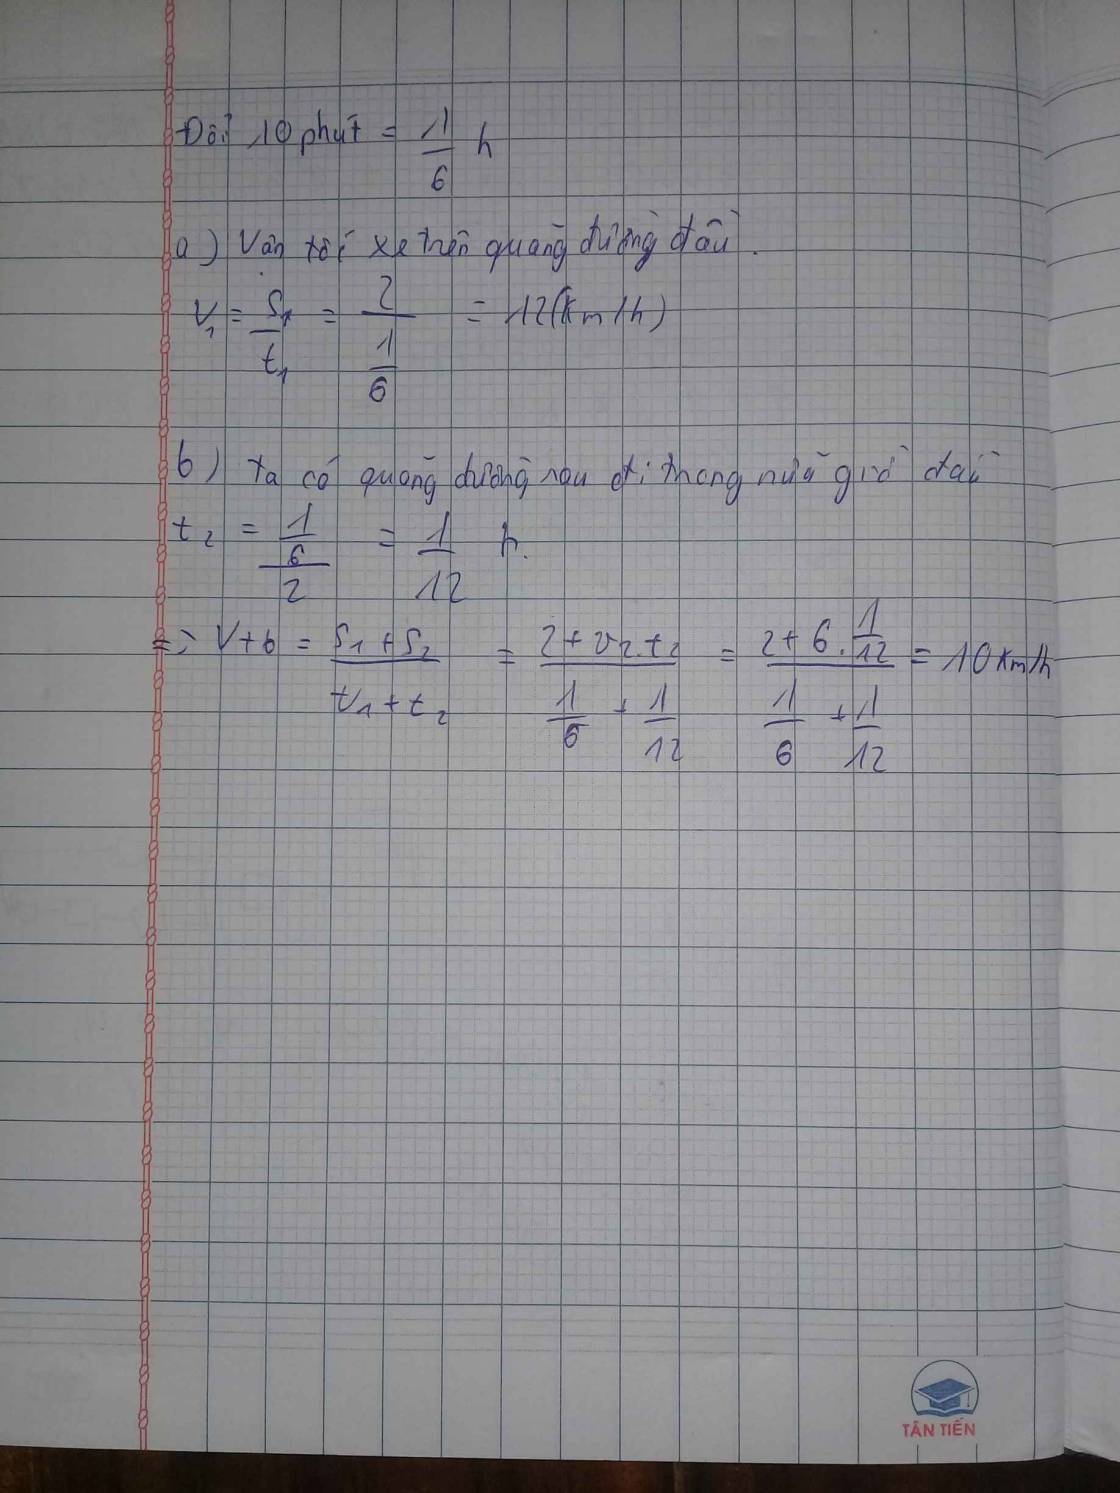 Đổi 10 phút = 1/6 h
a) Vận tốc xe trên quãng đường đầu.
V₁ = S₁/t₁ = 2/(1/6) = 12 (km/h)
b) Ta có quãng đường sau đi trong nửa giờ đầu
t₂ = (1/6)/2 = 1/12 h.
=> Vtb = (S₁ + S₂)/(t₁ + t₂) = (2 + v₂.t₂)/(1/6 + 1/12) = (2 + 6.1/12)/(1/6 + 1/12) = 10 km/h
TÂN TIẾN